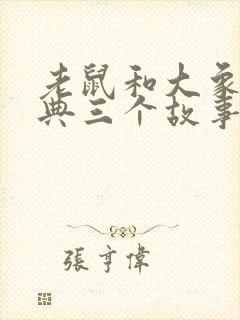 老鼠和大象
典三个故事
張亨偉